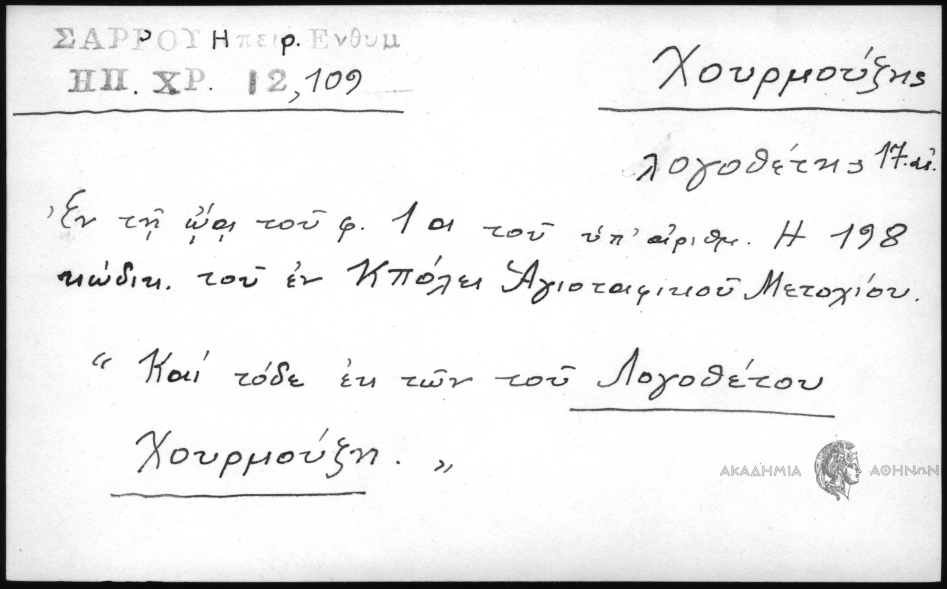 ΣΑΡΡΟΥ Ηπειρ. Ενθυμ
ΗΠ. ΧΡ. 12, 109
Χουρμούζης
λογοθέτης 17. αἰ.
Ἐν τῇ ᾤᾳ τοῦ φ. 1α τοῦ ὑπ' ἀριθμ. Η 198
κώδικ. τοῦ ἐν Κπόλει Ἁγιοταφικοῦ Μετοχίου.
“ Καί τόδε ἐκ τῶν τοῦ Λογοθέτου
Χουρμούζη. „
ΑΚΑΔΗΜΙΑ ΑΘΗΝΩΝ